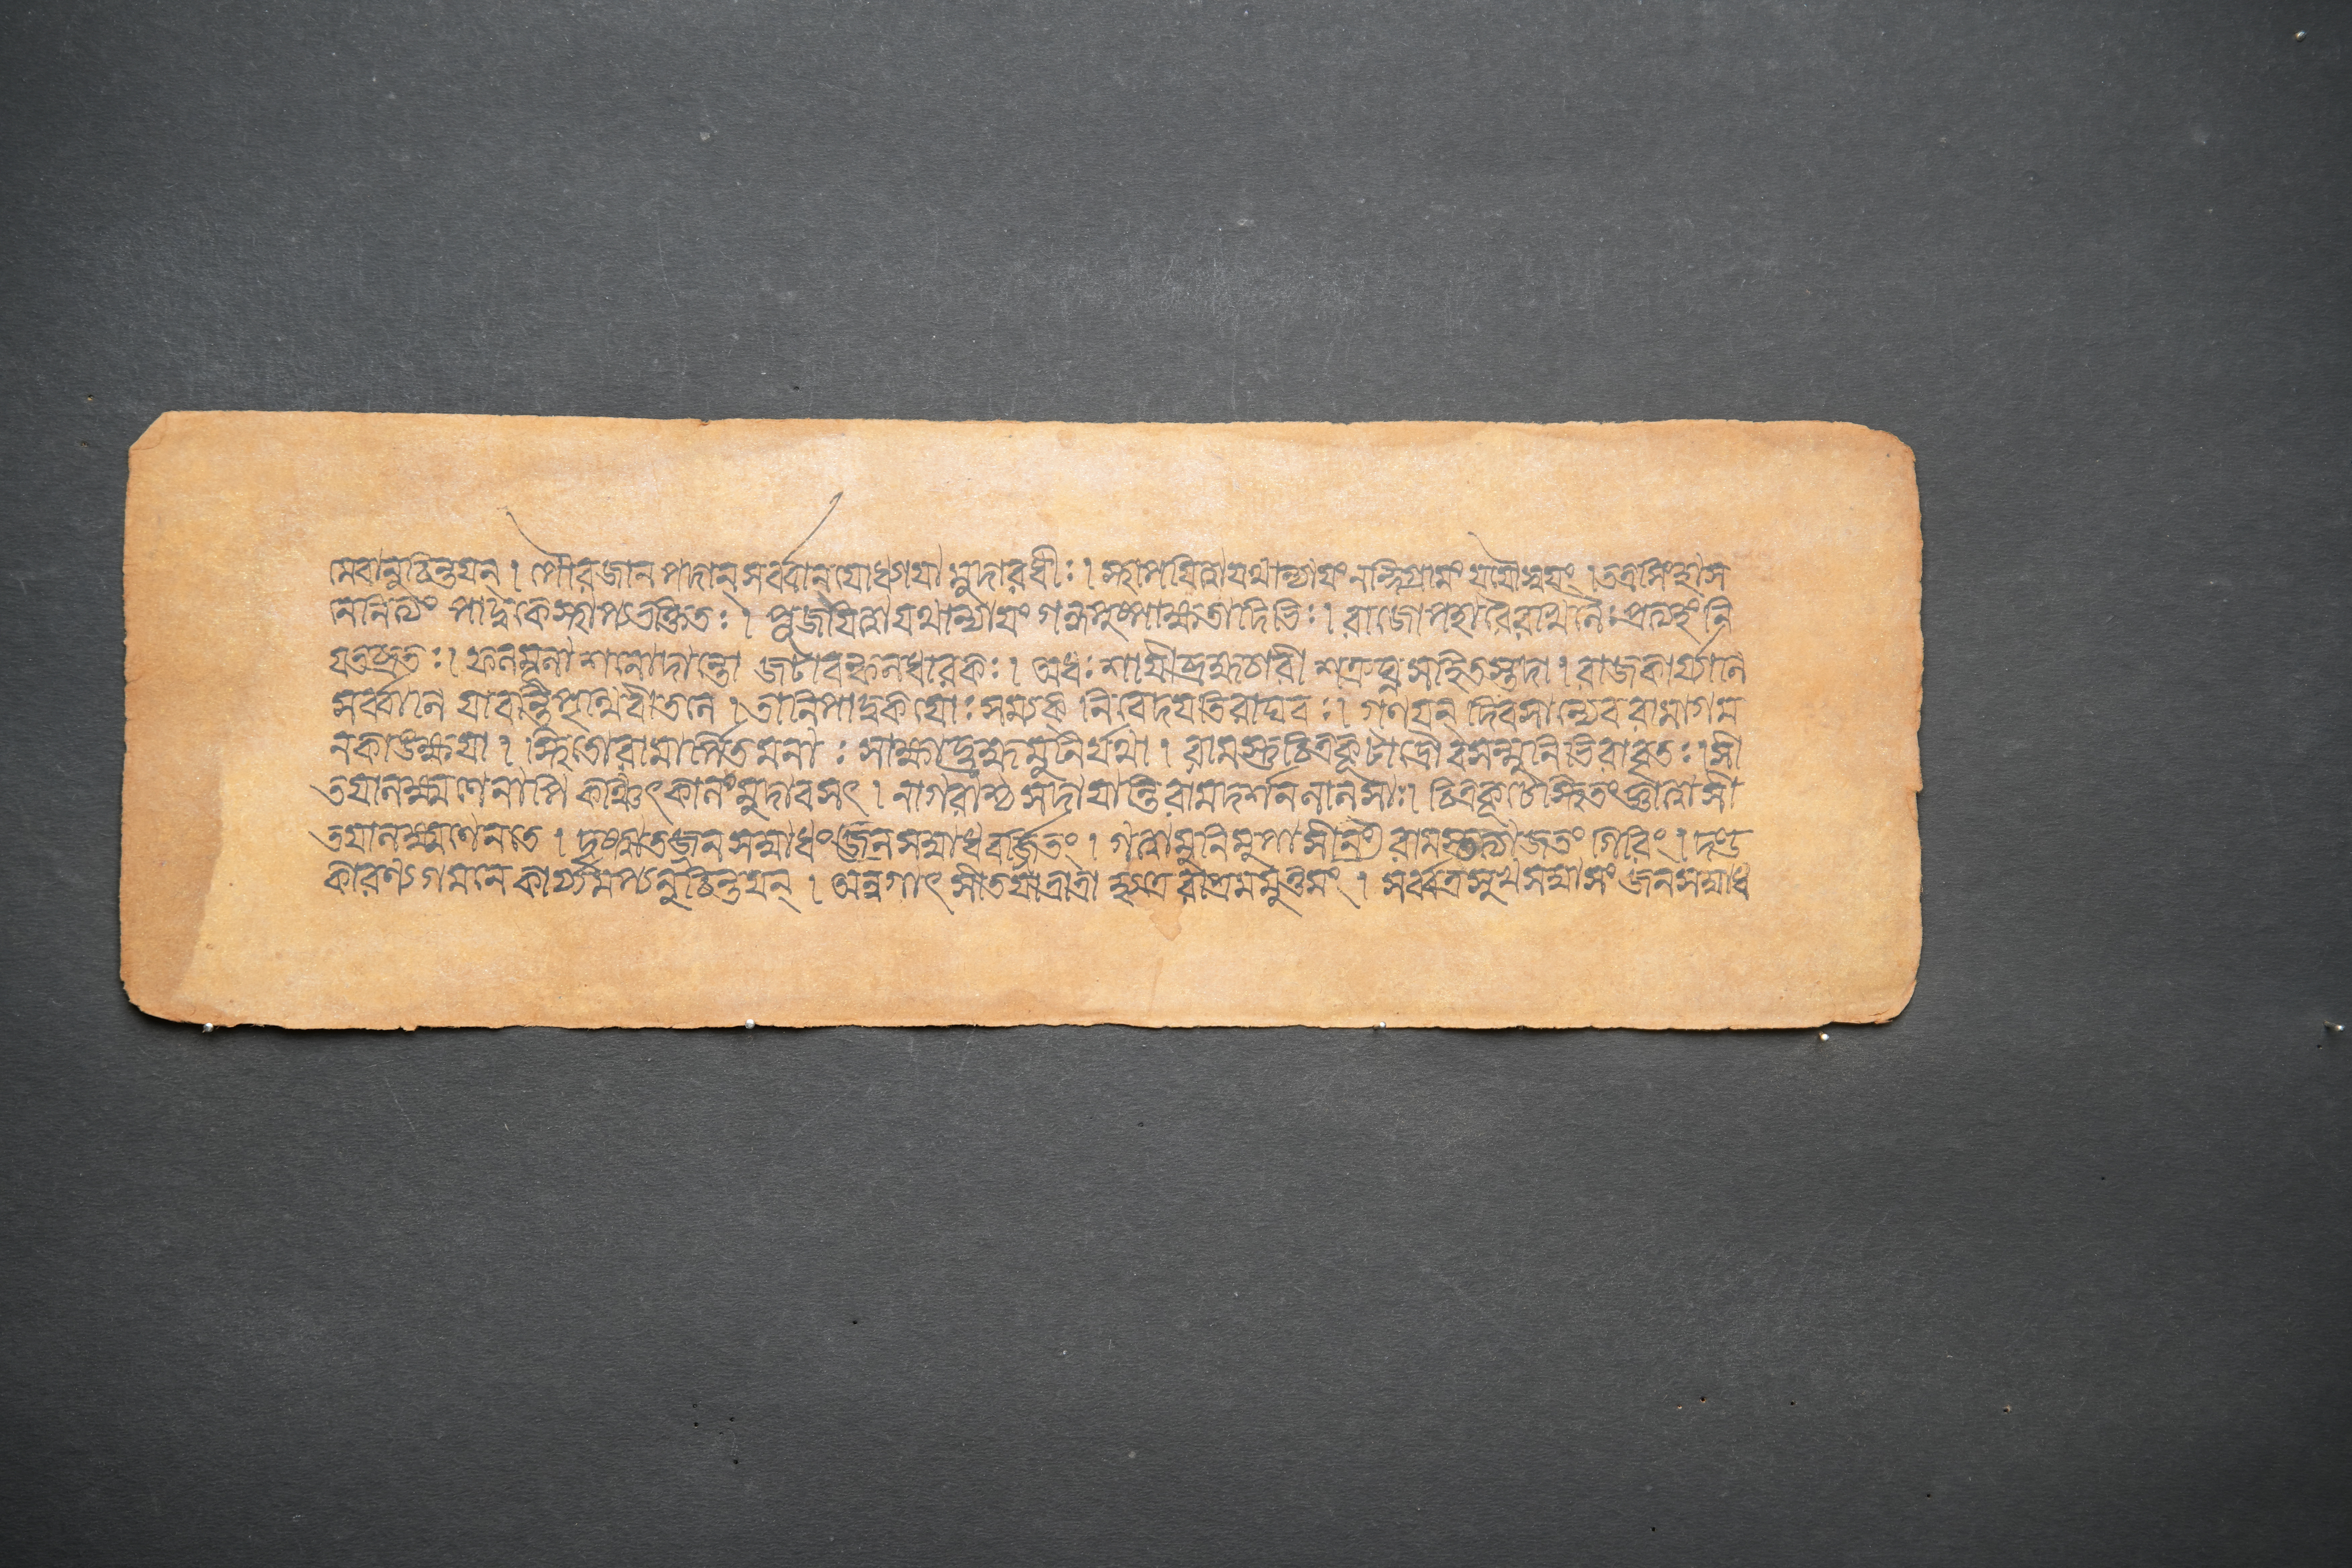 মেবানুচিন্তয়ন্ । পৌরজানপদান্ সর্ব্বান্যোধ্যায়ামুদারধীঃ । স্থাপয়িত্বা যথান্যায়ং নন্দিগ্রামং যযৌ স্বয়ং । তত্র সিংহাস
নে নিত্যং পাদুকে স্থাপ্য ভক্তিতঃ । পূজয়িত্বা যথান্যায়ং গন্ধপুষ্পাক্ষতাদিভিঃ । রাজোপহারৈরখিলৈঃ প্রত্যহং নি
যতব্রতঃ । ফলমূলাশনো দান্তো জটাবল্কলধারকঃ । অধঃশায়ী ব্রহ্মচারী শত্রুঘ্নসহিতস্তদা । রাজকার্য্যানি
সর্ব্বানি যাবন্তি পৃথিবীতলে । তানি পাদুকয়োঃ সম্যক্ নিবেদয়তি রাঘবঃ । গণয়ন্ দিবসান্যেব রামাগম
নকাঙক্ষয়া । স্থিতো রামার্পিতমনাঃ সাক্ষাদ্ব্রহ্মমুনির্যথা । রামস্তু চিত্রকূটাদ্রৌ বসন্মুনিভিরাবৃতঃ । সী
তয়া লক্ষ্মণেনাপি কিঞ্চিৎকালং মুদাবসৎ । নাগরাশ্চ সদা যান্তি রামদর্শনলালসাঃ । চিত্রকূটে স্থিতং জ্ঞাত্বা সী
তয়া লক্ষ্মণেন তে । দৃষ্ট্বা তজ্জনসম্বাধং জনসম্বাধবর্জিতং । গত্বা মুনিমুপাসীনং রামস্তত্যাজ তং গিরিং । দণ্ড
কারণ্যগমনে কার্য্যমপ্যনুচিন্তয়ন্ । অন্বগাৎ সীতয়া ভ্রাত্রা হ্যত্রেরাশ্রমমুত্তমং । সর্ব্বত্র সুখসম্বাসং জনসম্বাধ